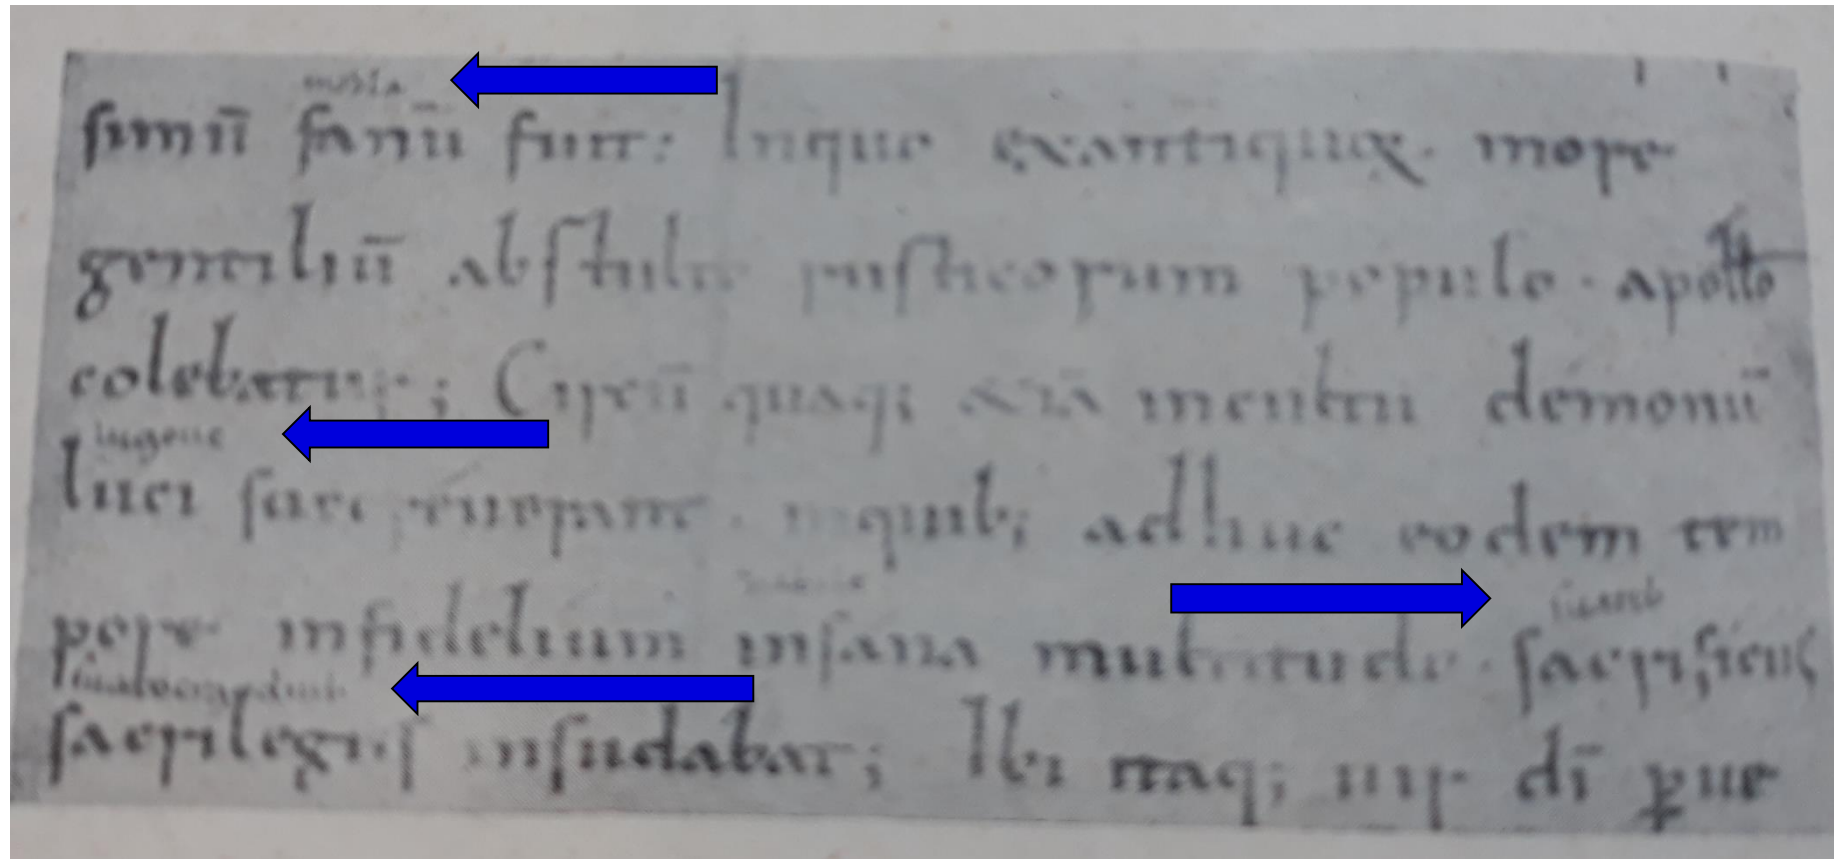 simū fanū fuit: Inquo exantiquoꝝ more
gentiliū abstulto rusticorum populo. apollo
colebatur; Circū quaq; &iā incultu demonū
luci succreuerant. inquib; adhuc eodem tem
pore infidelium insana multitudo. sacrificiis
sacrilegis insudabat; Ibi itaq; uir dī ꝑue